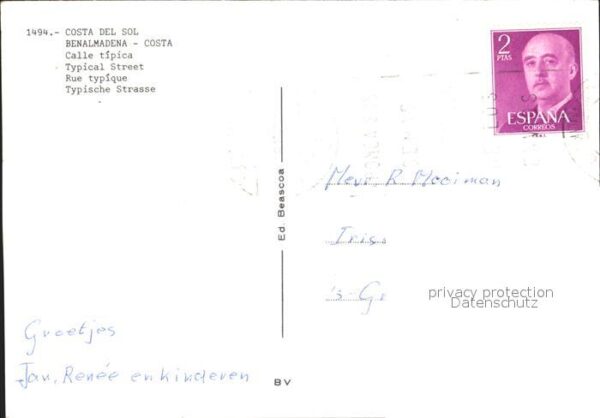 1494.- COSTA DEL SOL
BENALMADENA - COSTA
Calle típica
Typical Street
Rue typíque
Typische Strasse
2
PTAS
ESPAÑA
CORREOS
Ed. Beascoa
Mevr R Mooiman
Iris
's-Gr
privacy protection
Datenschutz
Groetjes
Jan, Renée en kinderen
BV